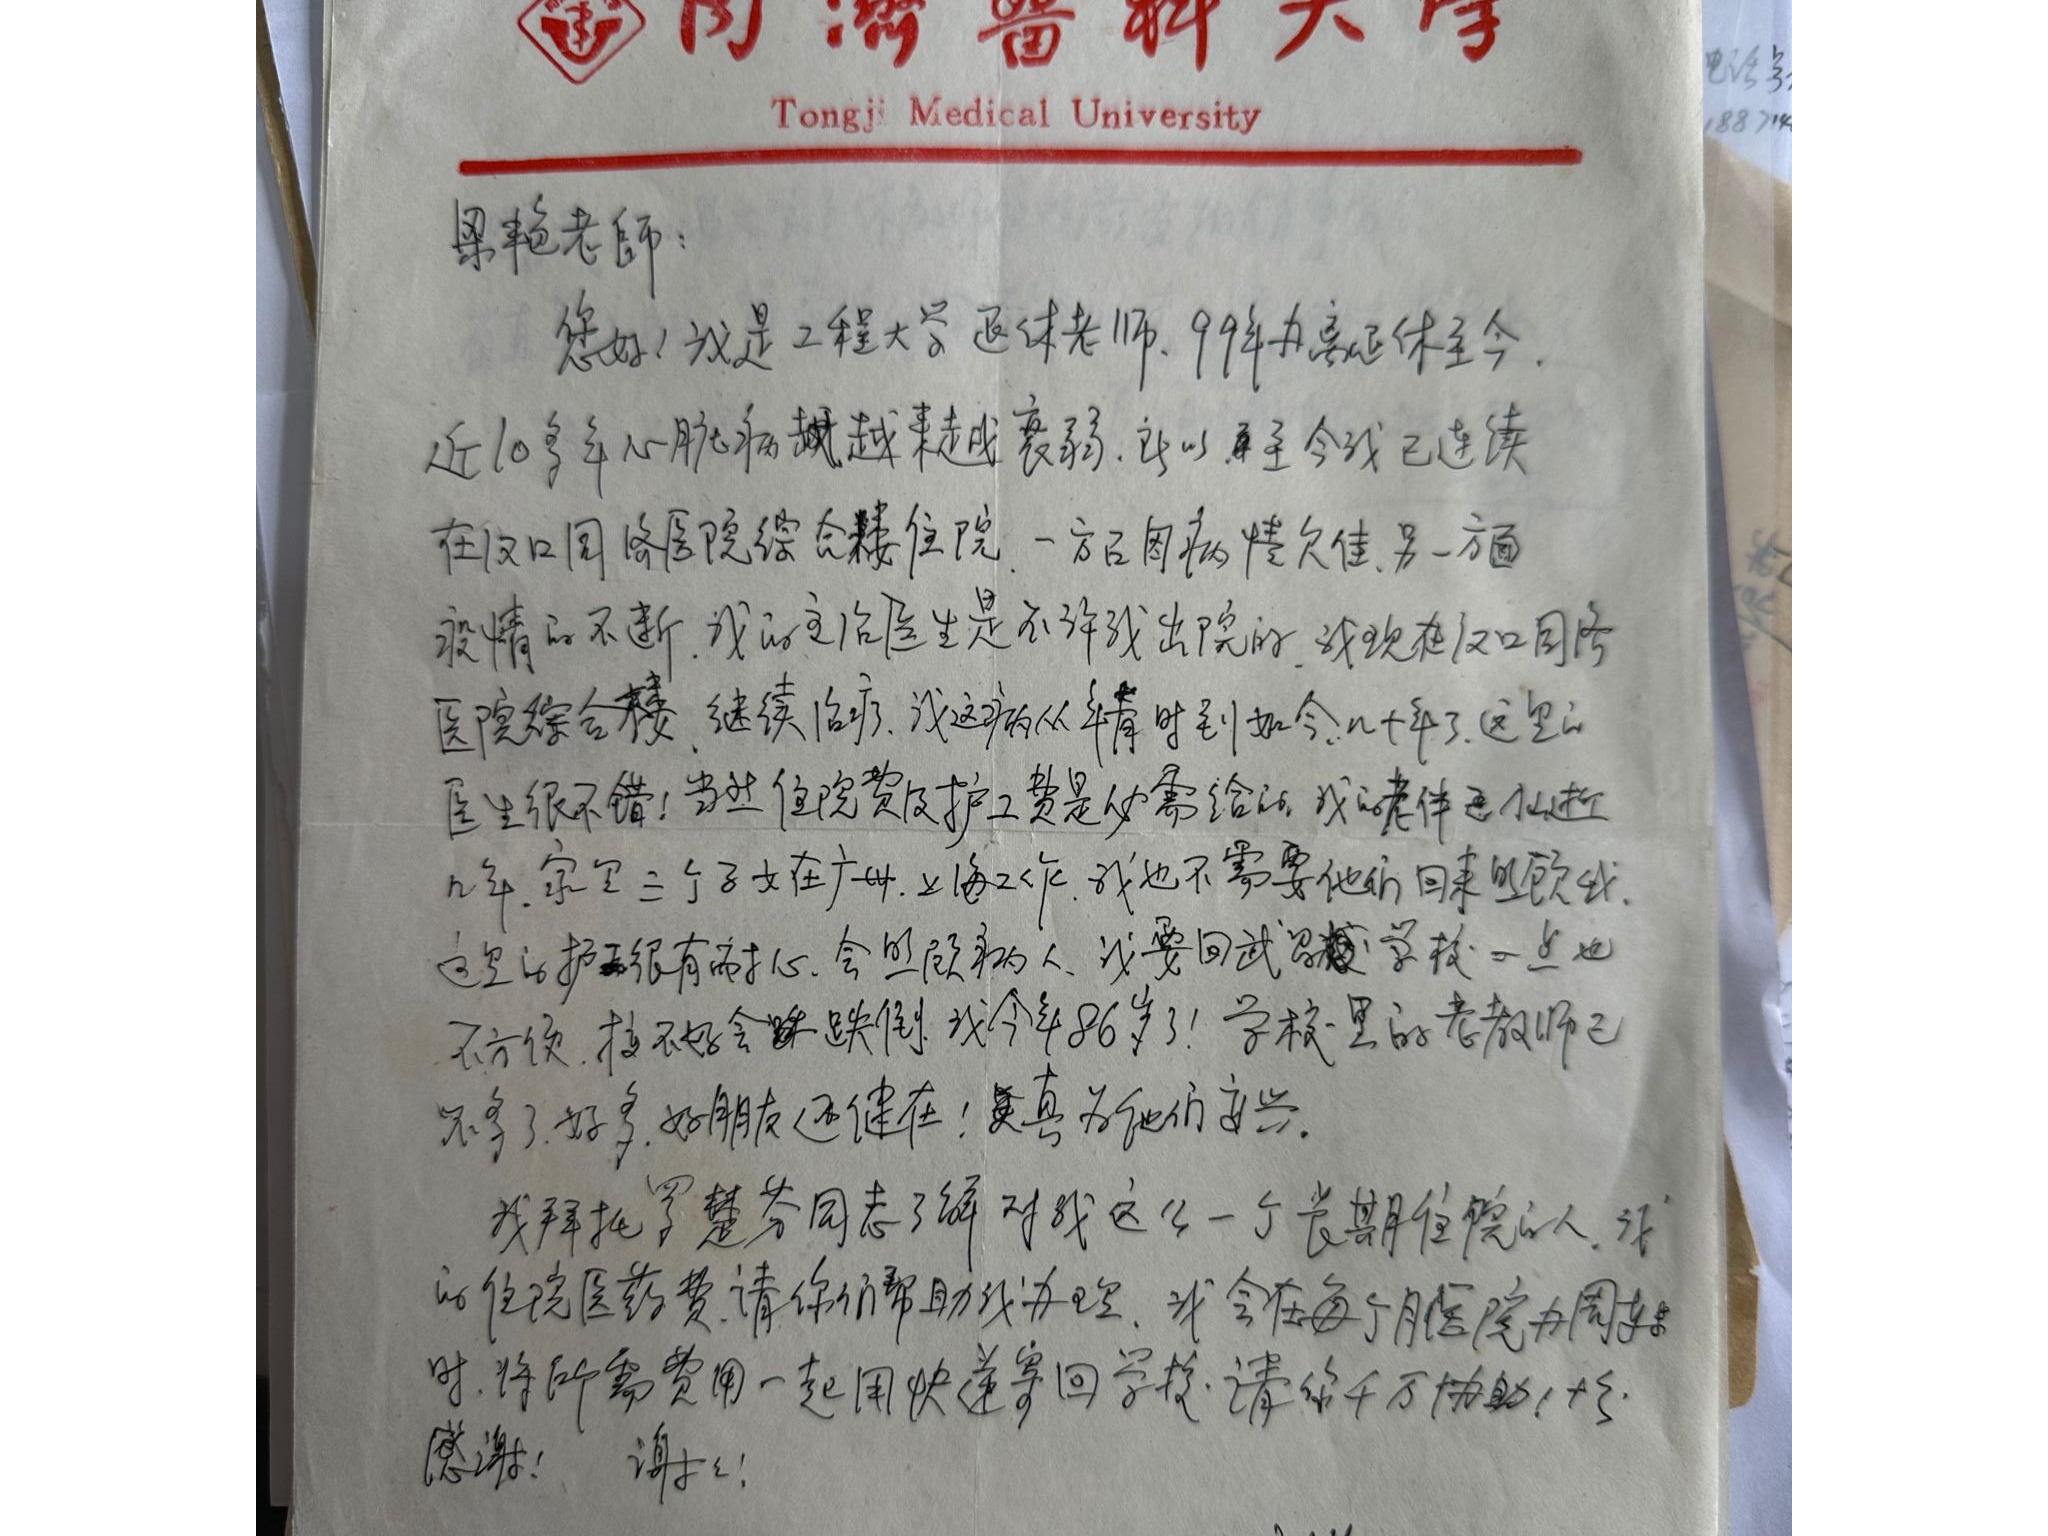 同濟醫科大学
Tongji Medical University
电话号
梁艳老师：
您好！我是工程大学退休老师、99年办离退休至今.
近10多年心脏病越来越衰弱.所以至今我已连续
在汉口同济医院综合楼住院、一方面因病情欠佳、另一方面
疫情的不断、我的主治医生是不许我出院的、我现在汉口同济
医院综合楼、继续治疗、我这病从年青时到如今、几十年了、这里的
医生很不错！当然住院费及护工费是必需给的、我的老伴已仙逝
几年、家里三个子女在广州、上海工作、我也不需要他们回来照顾我.
这里的护工很有耐心、会照顾病人、我要回武昌学校一点也
不方便、搞不好会跌倒、我今年86岁了！学校里的老教师已
不多了、好多、好朋友还健在！真为他们高兴.
我拜托罗楚芬同志了解对我这么一个长期住院的人、我
的住院医药费、请你们帮助我办理、我会在每个月医院办周转
时、将所需费用一起用快递寄回学校、请你千万协助！十分
感谢！ 谢谢！